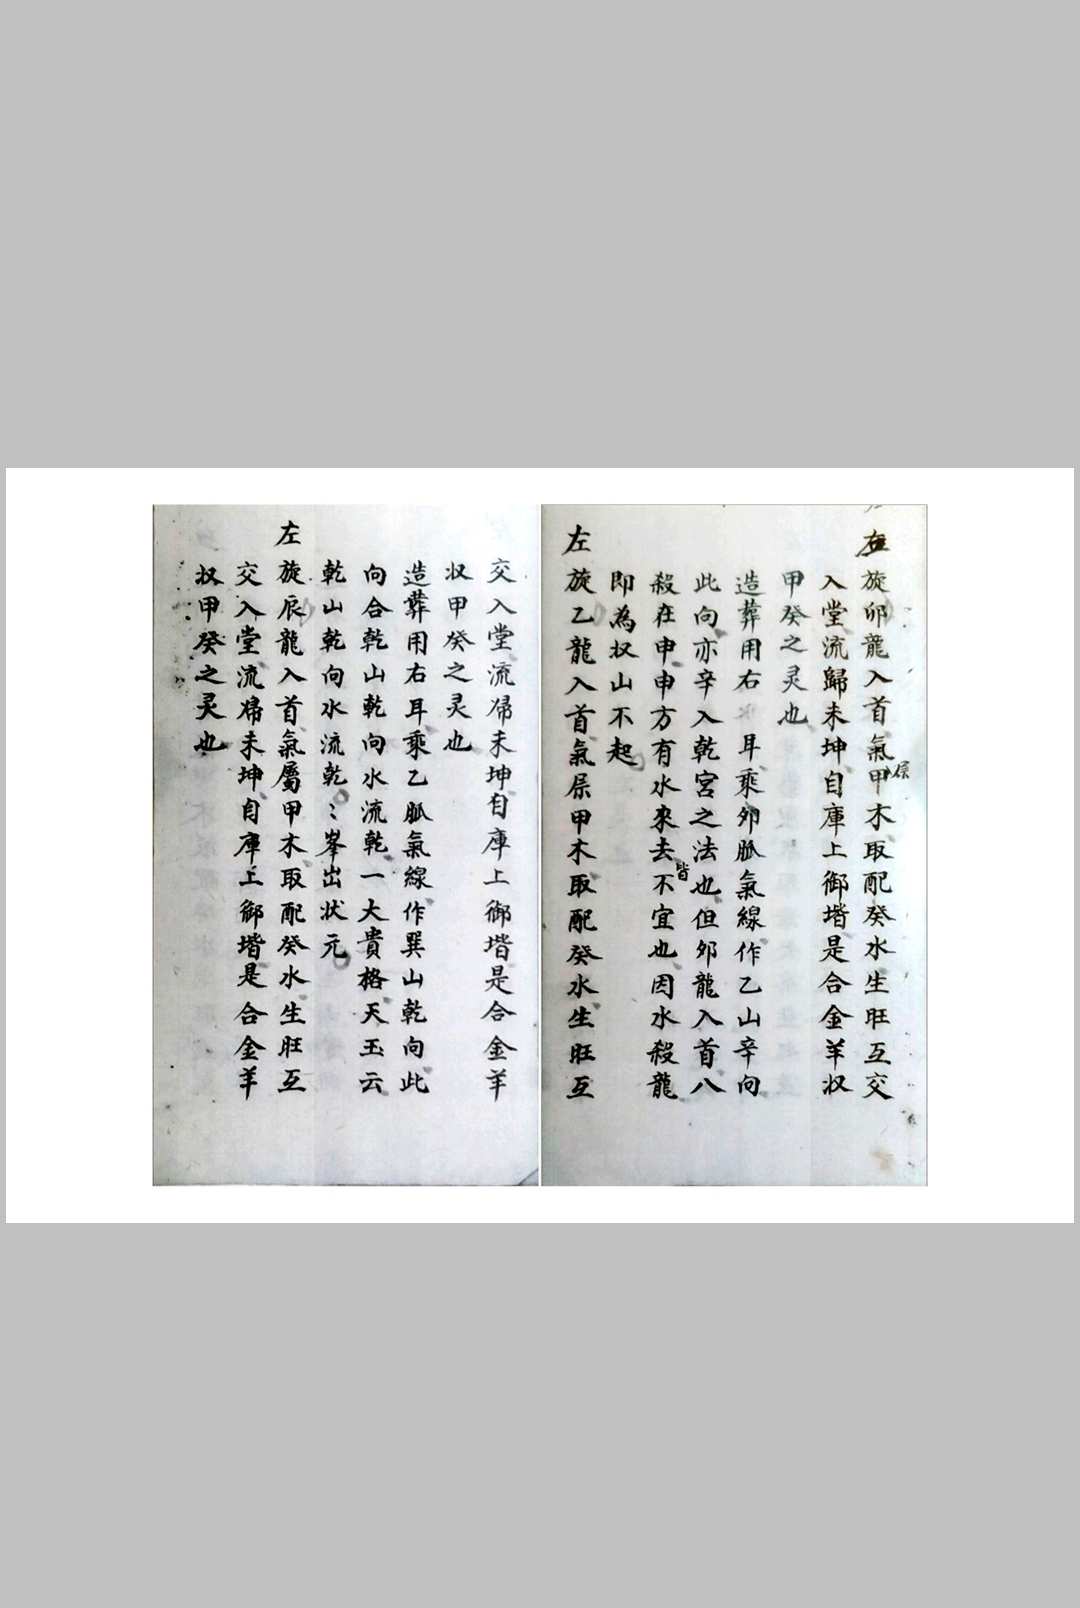 右旋卯龍入首氣屎甲木取配癸水生旺互交
入堂流歸未坤自庫上御堦是合金羊㕛
甲癸之灵也
造葬用右耳乘卯脈氣線作乙山辛向
此向亦辛入乾宮之法也但卯龍入首八
殺在申申方有水來去皆不宜也因水殺龍
即為㕛山不起
左旋乙龍入首氣屎甲木取配癸水生旺互
交入堂流帰未坤自庫上御堦是合金羊
㕛甲癸之灵也
造葬用右耳乘乙脈氣線作巽山乾向此
向合乾山乾向水流乾一大貴格天玉云
乾山乾向水流乾〻峯出状元
左旋辰龍入首氣屬甲木取配癸水生旺互
交入堂流帰未坤自庫上御堦是合金羊
㕛甲癸之灵也